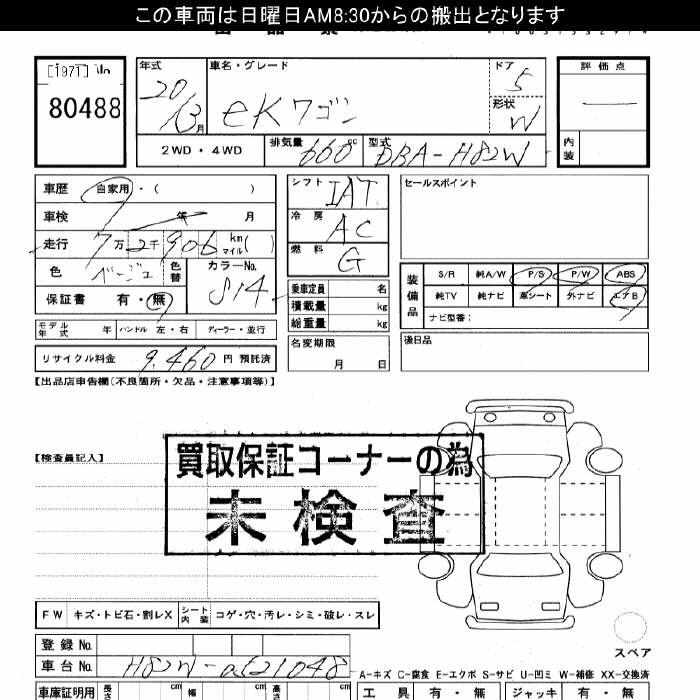 この車両は日曜日AM8:30からの搬出となります
[1971] No
80488
年式 20/3月
車名・グレード eKワゴン
ドア 5
形状 W
2WD・4WD
排気量 660cc
型式 DBA-H82W
評価点
内装
車歴 自家用・( )
車検 年 月
走行 7万2千906 km マイル( )
色 ベージュ 色替 カラーNo. S14
保証書 有・無
モデル年式 年 ハンドル 左・右 ディーラー・並行
リサイクル料金 9,460 円 預託済
シフト IAT
冷房 AC
燃料 G
乗車定員 名
積載量 kg
総重量 kg
名変期限 月 日
セールスポイント
装備品
S/R 純A/W P/S P/W ABS
純TV 純ナビ 革シート 外ナビ エアB
ナビ型番:
後日品
【出品店申告欄(不良箇所・欠品・注意事項等)】
【検査員記入】
買取保証コーナーの為
未検査
FW キズ・トビ石・割レX シート内装 コゲ・穴・汚レ・シミ・破レ・スレ
スペア
登録No.
車台No. H82W-
A-キズ C-腐食 E-エクボ S-サビ U-凹ミ W-補修 XX-交換済
車庫証明用 長さ cm 幅 cm 高さ cm
工具 有・無 ジャッキ 有・無